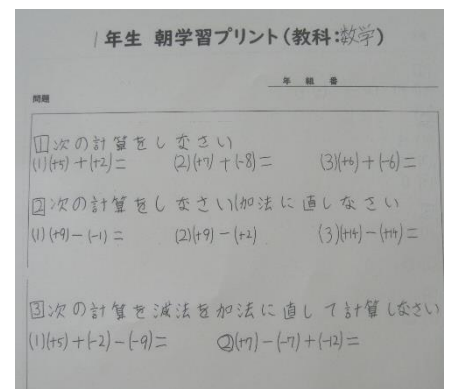 1年生 朝学習プリント(教科:数学)
年 組 番
問題
1次の計算をしなさい
(1)(+5)+(+2)= (2)(+7)+(-8)= (3)(+6)+(-6)=
2次の計算をしなさい(加法に直しなさい
(1)(+9)-(-1)= (2)(+9)-(+2) (3)(+14)-(+14)=
3次の計算を減法を加法に直して計算しなさい
(1)(+5)+(-2)-(-9)= ②(+7)-(-7)+(-12)=